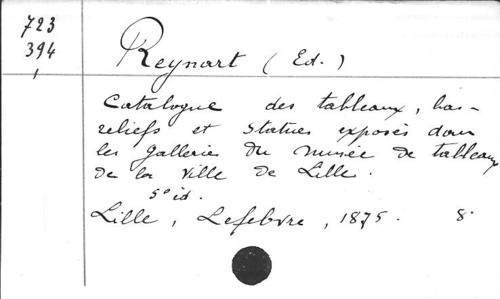 723
394
Reynart (Ed.)
Catalogue des tableaux, bas-
reliefs et statues exposés dans
les galleries du musée de tableaux
de la ville de Lille.
5º éd.
Lille, Lefebvre, 1875. 8.